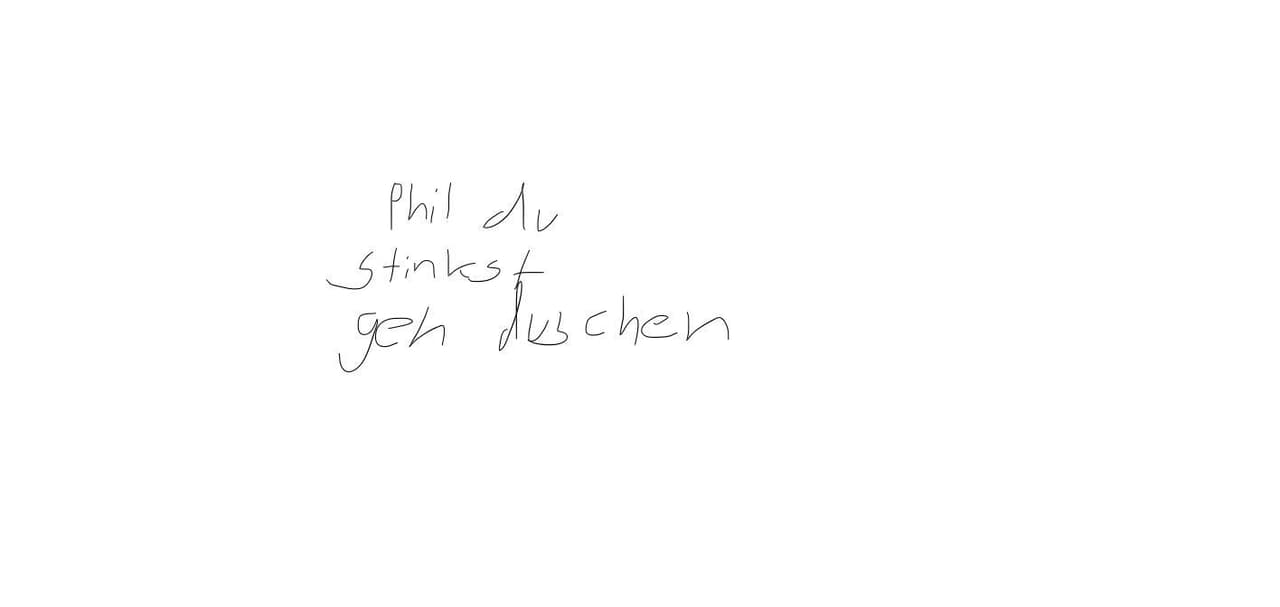 Phil du
stinkst
geh duschen